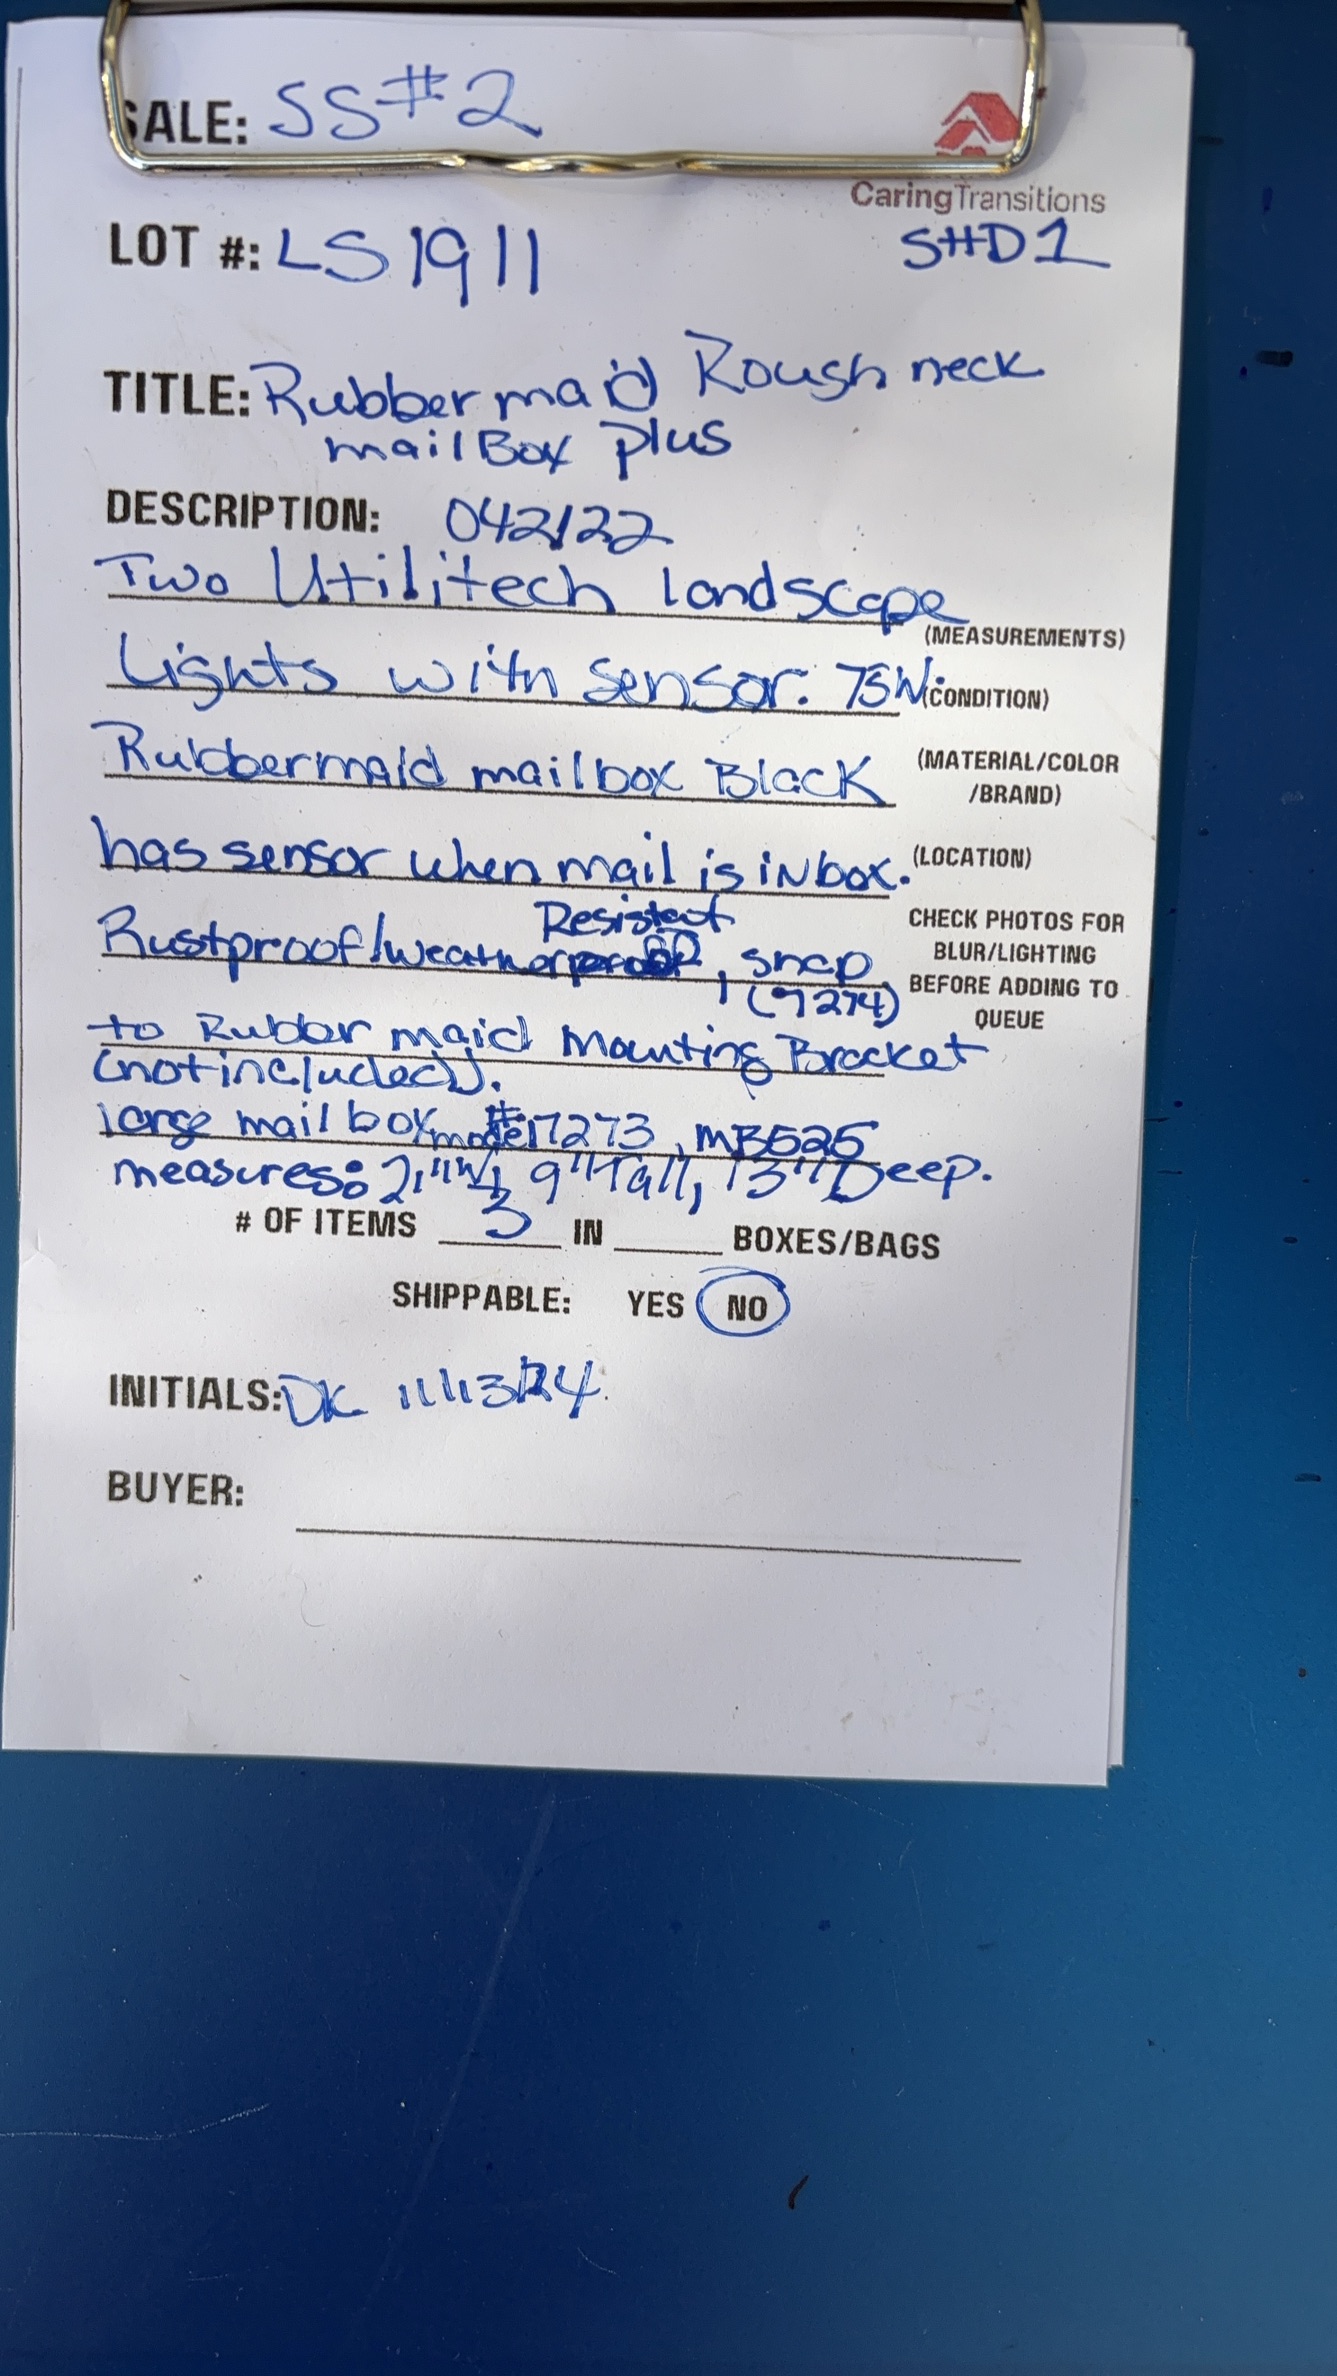 SALE: SS#2
CaringTransitions
LOT #: LS1911 SHD1
TITLE: Rubbermaid Roughneck
mailBox Plus
DESCRIPTION: 042122
Two Utilitech landscape
(MEASUREMENTS)
Lights with sensor. 75W.
(CONDITION)
Rubbermaid mailbox Black
(MATERIAL/COLOR
/BRAND)
has sensor when mail is in box.
(LOCATION)
Resistant
Rustproof/weather, snap
(7274)
CHECK PHOTOS FOR
BLUR/LIGHTING
BEFORE ADDING TO
QUEUE
to Rubber maid Mounting Bracket
(not included).
large mail box model #7273, MB525
measures: 21"W, 9"Tall, 13"Deep.
# OF ITEMS 3 IN BOXES/BAGS
SHIPPABLE: YES NO
INITIALS: DK 11/13/24
BUYER: